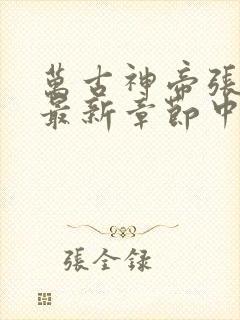 萬古神帝張
最新章節中
張全錄